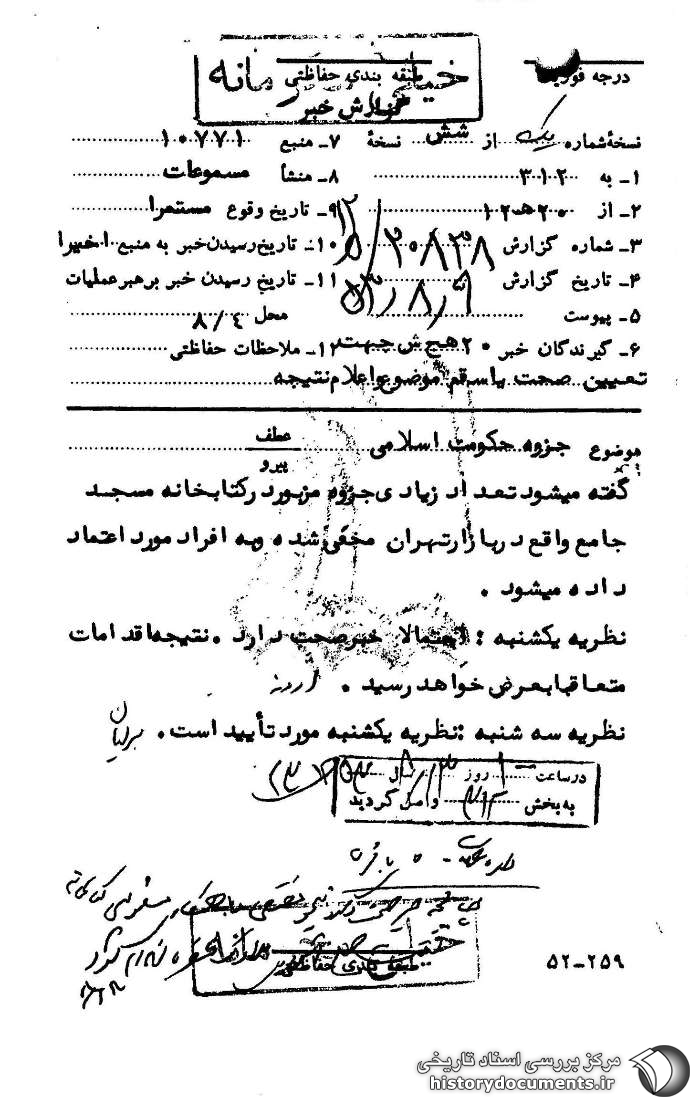 خیلی محرمانه
طبقه بندی حفاظتی
گزارش خبر
درجه فوریت
نسخهٔ شماره یک از شش نسخهٔ
۷ـ منبع ۱۰۷۷۱
۱ـ به ۳۱۲
۸ـ منشأ مسموعات
۲ـ از ۲۰ ه ۱۲
۹ـ تاریخ وقوع مستمرا
۳ـ شماره گزارش ۲۰۸۳۸
۱۰ـ تاریخ رسیدن خبر به منبع اخیرا
۴ـ تاریخ گزارش ۵۳/۸/۹
۱۱ـ تاریخ رسیدن خبر برهبر عملیات
۵ـ پیوست
محل ۸/۴
۶ـ گیرندگان خبر ۲۰ هج ش جهت
۱۲ـ ملاحظات حفاظتی
تعیین صحت یا سقم موضوع و اعلام نتیجه
موضوع جزوه حکومت اسلامی
عطف
پیرو
گفته میشود تعداد زیادی جزوه مزبور در کتابخانه مسجد
جامع واقع در بازار تهران مخفی شده و به افراد مورد اعتماد
داده میشود .
نظریه یکشنبه : احتمالا خبر صحت دارد . نتیجه اقدامات
متعاقبا بعرض خواهد رسید .
نظریه سه شنبه : نظریه یکشنبه مورد تأیید است .
در ساعت روز
به بخش ۳۱۲ واصل گردید
طبقه بندی حفاظتی
۵۲-۲۵۹
مرکز بررسی اسناد تاریخی
historydocuments.ir